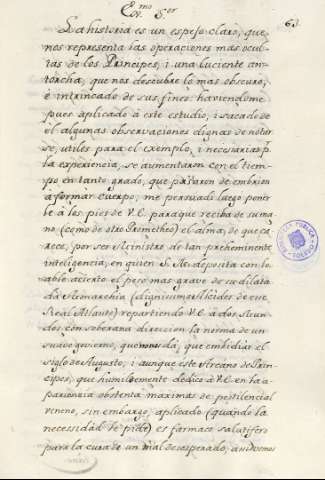 Ex.mo S.or
63
La historia es un espejo claro, que
nos representa las operaciones mas ocul-
tas de los Principes, i una luciente an-
torcha, que nos descubre lo mas obscuro,
è intrincado de sus fines: haviendome
pues aplicado à este estudio, i sacado de
el algunas observaciones dignas de notar
se, utiles para el exemplo, i necesarias p
la experiencia, se aumentaron con el tiem-
po en tanto grado, que pasaron de embrion
a formar cuerpo; me persuadì luego poner
le à los pies de V.E. paraque reciba de su ma-
no (como de otro Prometheo) el alma, de que ca-
rece, por ser Ministro de tan prehemìnente
inteligencia, en quien S. M. deposita con lo-
able acierto el peso mas grave de su dilata
da Monarchia (dignisimo Alcides de ese
Real Atlante) repartiendo V.E. à dos Mun-
dos con soberana direccion la norma de un
suave govierno, que da, que embidiar el
siglo de Augusto; i aunque este Arcano de Prin-
cipes, que humildemente dedico à V.E. en la a-
pariencia obstenta maximas de pestilencial
veneno, sin embargo, aplicado (quando la
necesidad le pide) es farmaco salutifero
para la cura de un mal desesperado, avivemos
BIBLIOTECA PUBLICA TOLEDO